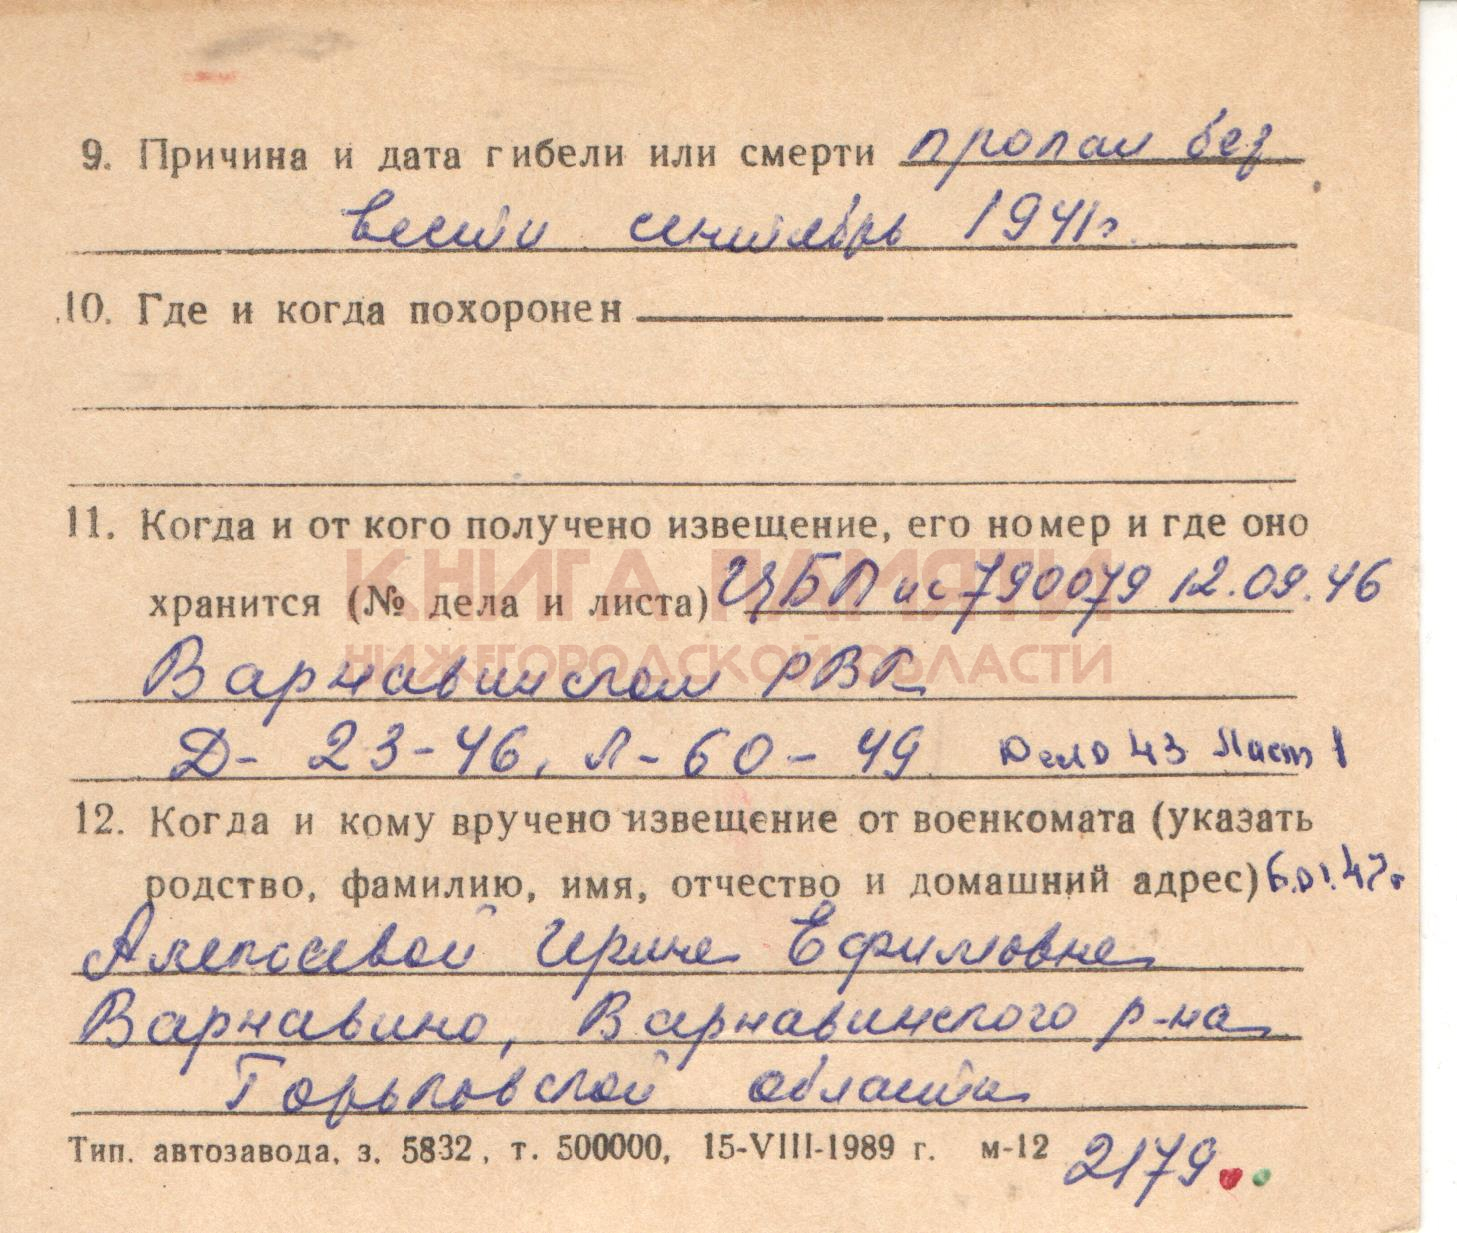 9. Причина и дата гибели или смерти пропал без
вести сентябрь 1941г.
10. Где и когда похоронен
11. Когда и от кого получено извещение, его номер и где оно
КНИГА ПАМЯТИ
хранится (№ дела и листа) ЦБП ис 790079 12.09.46
НИЖЕГОРОДСКОЙ ОБЛАСТИ
Варнавинском РВК
Д- 23-46, Л-60-49 Дело 43 Лист 1
12. Когда и кому вручено извещение от военкомата (указать
родство, фамилию, имя, отчество и домашний адрес) 6.01.47г
Алексеевой Ирине Ефимовне
Варнавино, Варнавинского р-на
Горьковской области
Тип. автозавода, з. 5832, т. 500000, 15-VIII-1989 г. м-12 2179